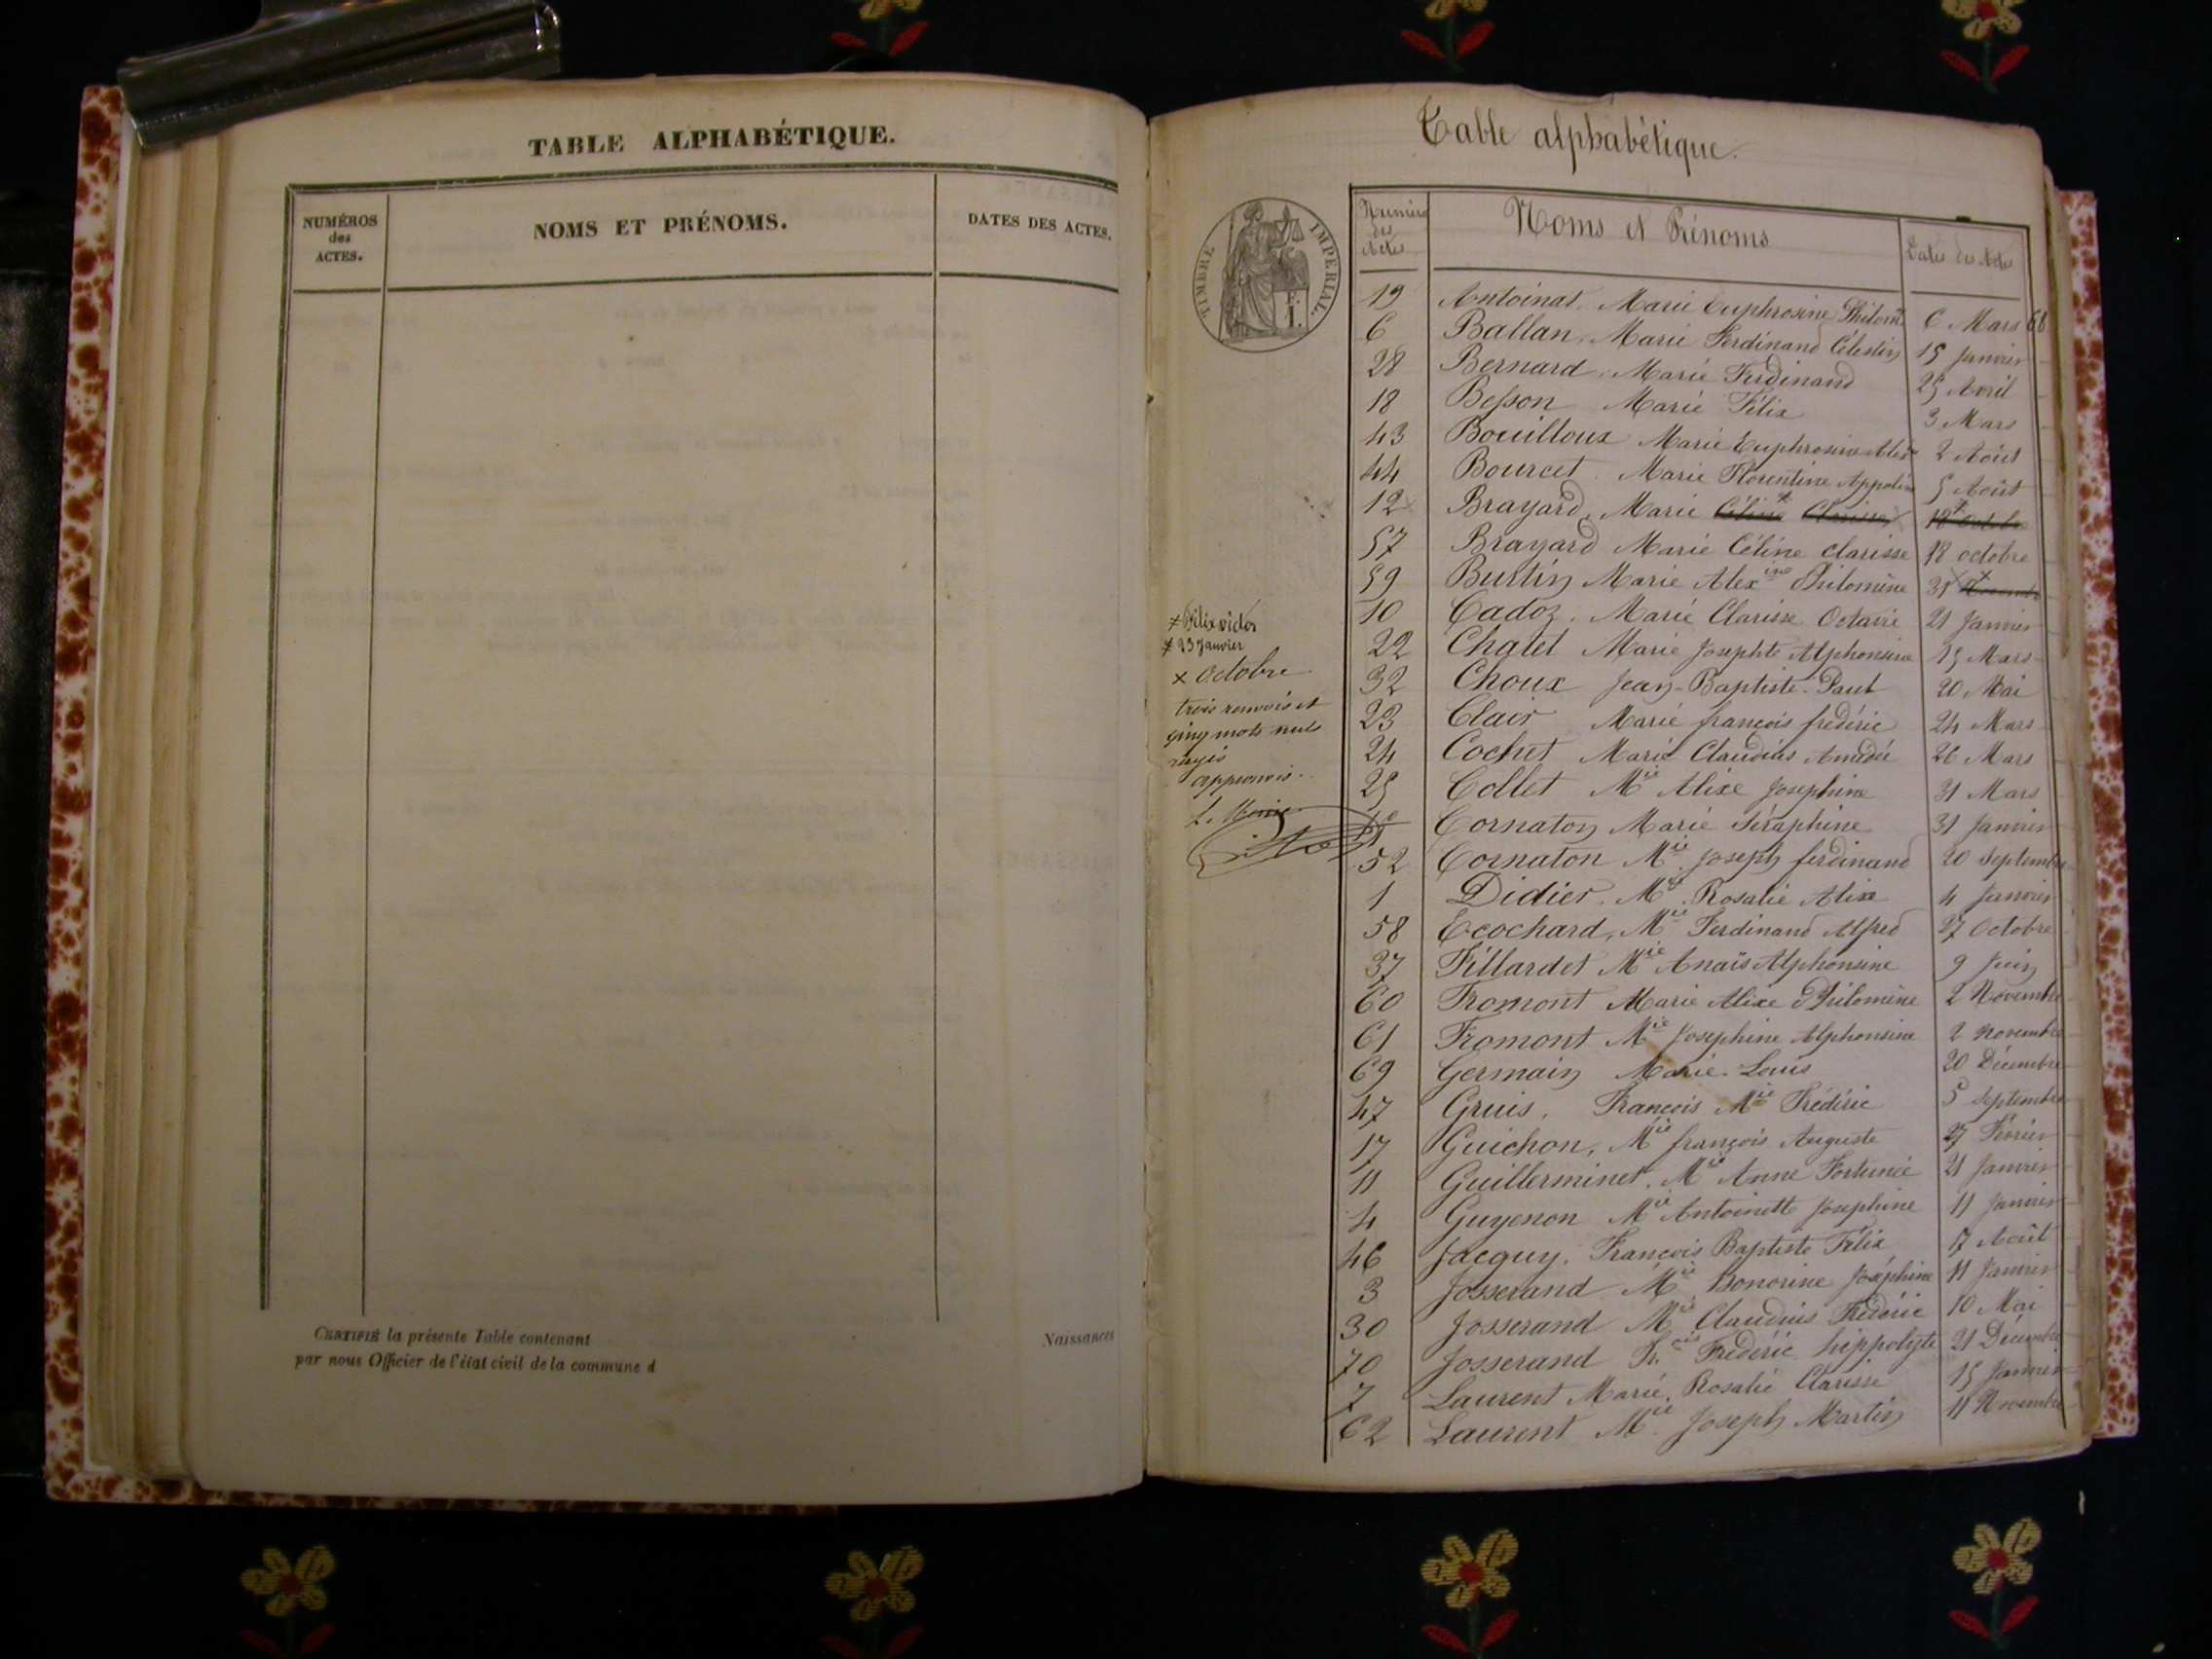 TABLE ALPHABÉTIQUE.
NUMÉROS
des
ACTES.
NOMS ET PRÉNOMS.
DATES DES ACTES.
CERTIFIÉ la présente Table contenant
Naissances
par nous Officier de l'état civil de la commune d
Table alphabétique.
TIMBRE IMPERIAL.
Numéros
des
Actes
Noms et Prénoms
Dates des Actes
19 Antoinat. Marie Euphrosine Philom 6 Mars 68
6 Ballan, Marie Ferdinand Célestin 15 Janvier
28 Bernard, Marie Ferdinand 25 Avril
18 Besson Marie Félix 3 Mars
43 Bouilloux Marie Euphrosine Alix 2 Août
44 Bourcet. Marie Florentine Appolin 5 Août
12 Brayard, Marie Céline Clarisse 18 octobre
57 Brayard Marie Céline clarisse 18 octobre
59 Burtin Marie Alexine Philomène 31
10 Cadoz. Marie Clarisse Octavie 21 Janvier
22 Chatel Marie Josephte Alphonsine 15 Mars
32 Choux Jean-Baptiste-Paul 20 Mai
23 Clair Marie françois frédéric 24 Mars
24 Cochet Marie Claudius Amédée 26 Mars
25 Collet Mie Alixe Josephine 31 Mars
Cornaton Marie Séraphine 31 Janvier
52 Cornaton Mie Joseph ferdinand 20 Septembre
1 Didier. Mie Rosalie Alixe 4 Janvier
58 Ecochard, Mie Ferdinand Alfred 27 Octobre
37 Fillardet Mie Anaïs Alphonsine 9 Juin
60 Fromont Marie Alixe Philomène 2 Novembre
61 Fromont Mie Josephine Alphonsine 2 novembre
69 Germain Marie-Louis 20 Décembre
47 Gruis, François Mie Frédéric 5 septembre
17 Guichon, Mie françois Auguste 27 Février
11 Guillerminet, Mie Anne Fortunée 21 Janvier
4 Guyenon Mie Antoinette Josephine 11 Janvier
46 Jacquy. François Baptiste Félix 17 Août
3 Josserand Mie Honorine Joséphine 11 Janvier
30 Josserand Mie Claudius Frédéric 10 Mai
70 Josserand Fr.çois Frédéric hippolyte 21 Décembre
7 Laurent Marie, Rosalie Clarisse 15 Janvier
62 Laurent Mie Joseph Martin 11 Novembre
≠ Félix victor
≠ 23 Janvier
× Octobre
trois renvois et
cinq mots nuls
rayés
approuvés.